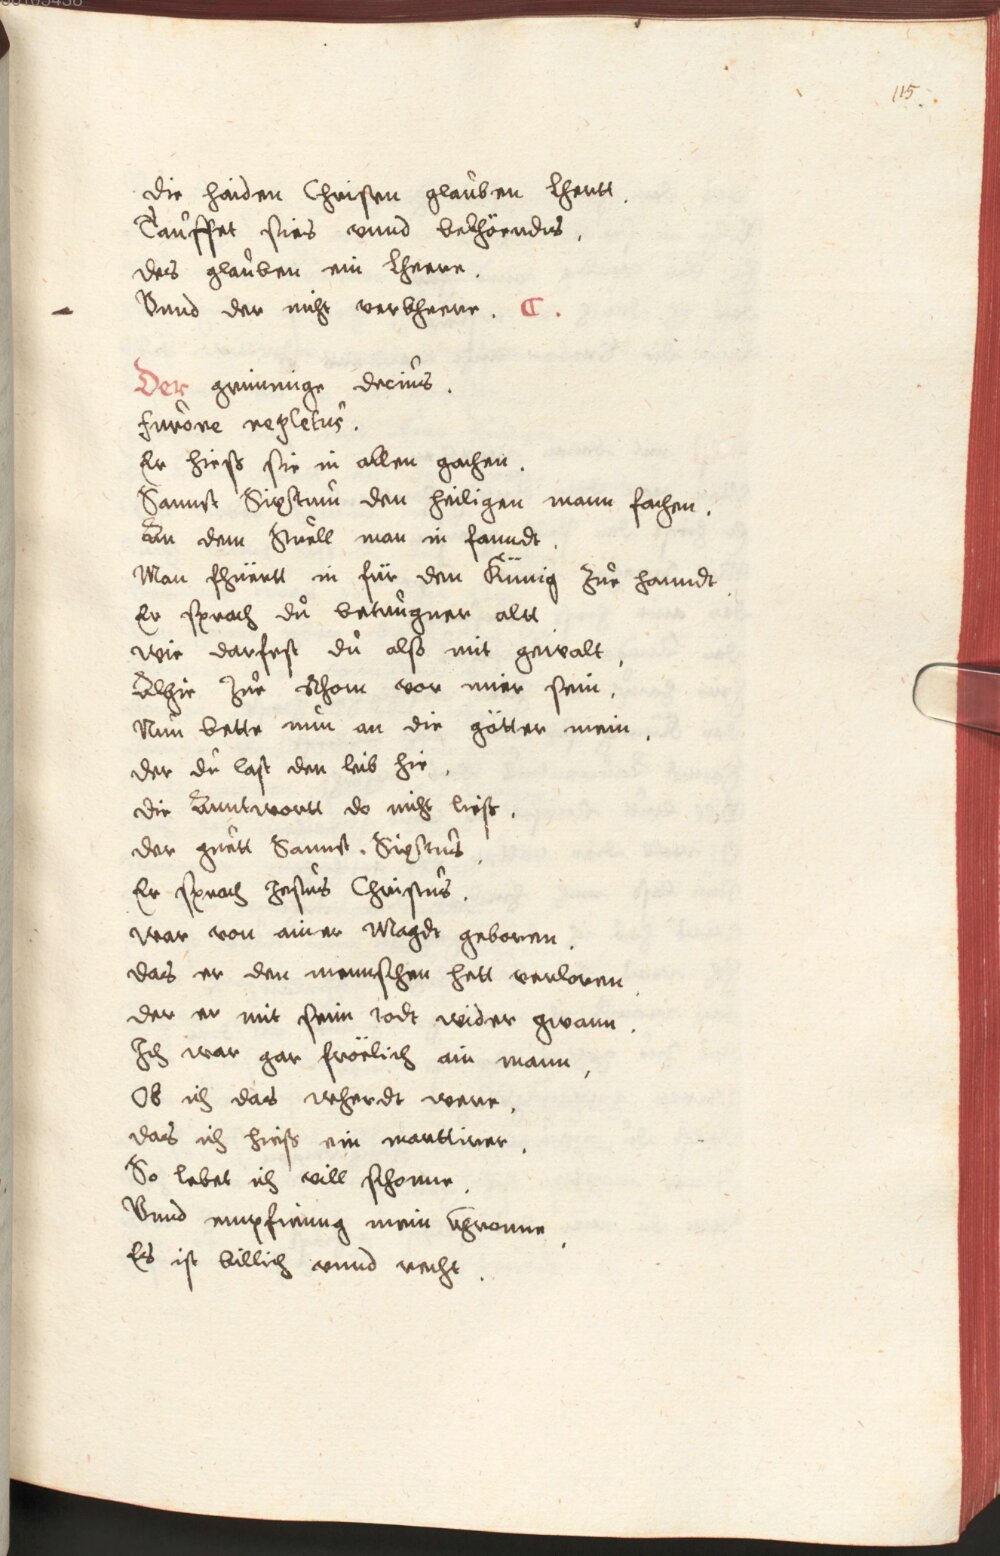 115.
die haiden Christen glauben lhertt.
Tauffet sies vnnd bekhöerdis,
des glauben ein lheere.
Vnnd der nicht verkheere. C.
Der grimmige decius.
furore repletus.
Er hieß sie in allen gachen.
Sannct Sixstum den heiligen mann fachen.
An dem Stuell man in fanndt.
Man fhüertt in für den Künig zur hanndt.
Er sprach du betrugner altt
wie darfest du alß mit gewalt,
Alhie zue Rhom vor mier sein.
Nun bette nun an die götter mein,
der du last den leib hie,
die Anntwortt do nicht ließ.
der guett Sannct. Sixstus,
Er sprach Jesus Christus.
war von ainer Magdt geboren.
das er den mennschen hett verloren.
der er mit seim todt wider gwann.
Ich war gar fröelich ain mann,
Ob ich das wherdt were,
das ich hieß ein marttirer.
So lebet ich vill schonne.
Vnnd empfienng mein Chronne,
Es ist billich vnnd recht.